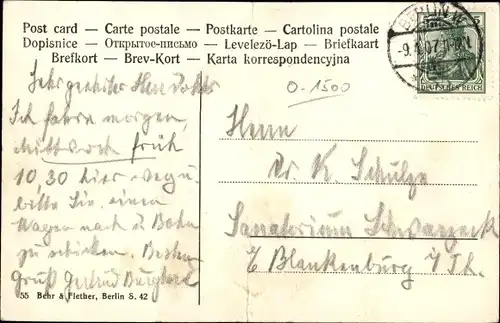 Post card — Carte postale — Postkarte — Cartolina postale
Dopisnice — Открытое-письмо — Levelező-Lap — Briefkaart
Brefkort — Brev-Kort — Karta korrespondencyjna
BERLIN W.
-9.
07.
DEUTSCHES REICH
0-1500
Sehr geehrter Herr Doktor
Ich fahre morgen,
Mittwoch früh
10,30 hier weg u.
bitte Sie, einen
Wagen nach d. Bahn
zu schicken. Besten
Gruß Gertrud
Herrn
Dr. K. Schulze
Sanatorium Schwarzeck
b/ Blankenburg i/Th.
55 Behr & Flether, Berlin S. 42